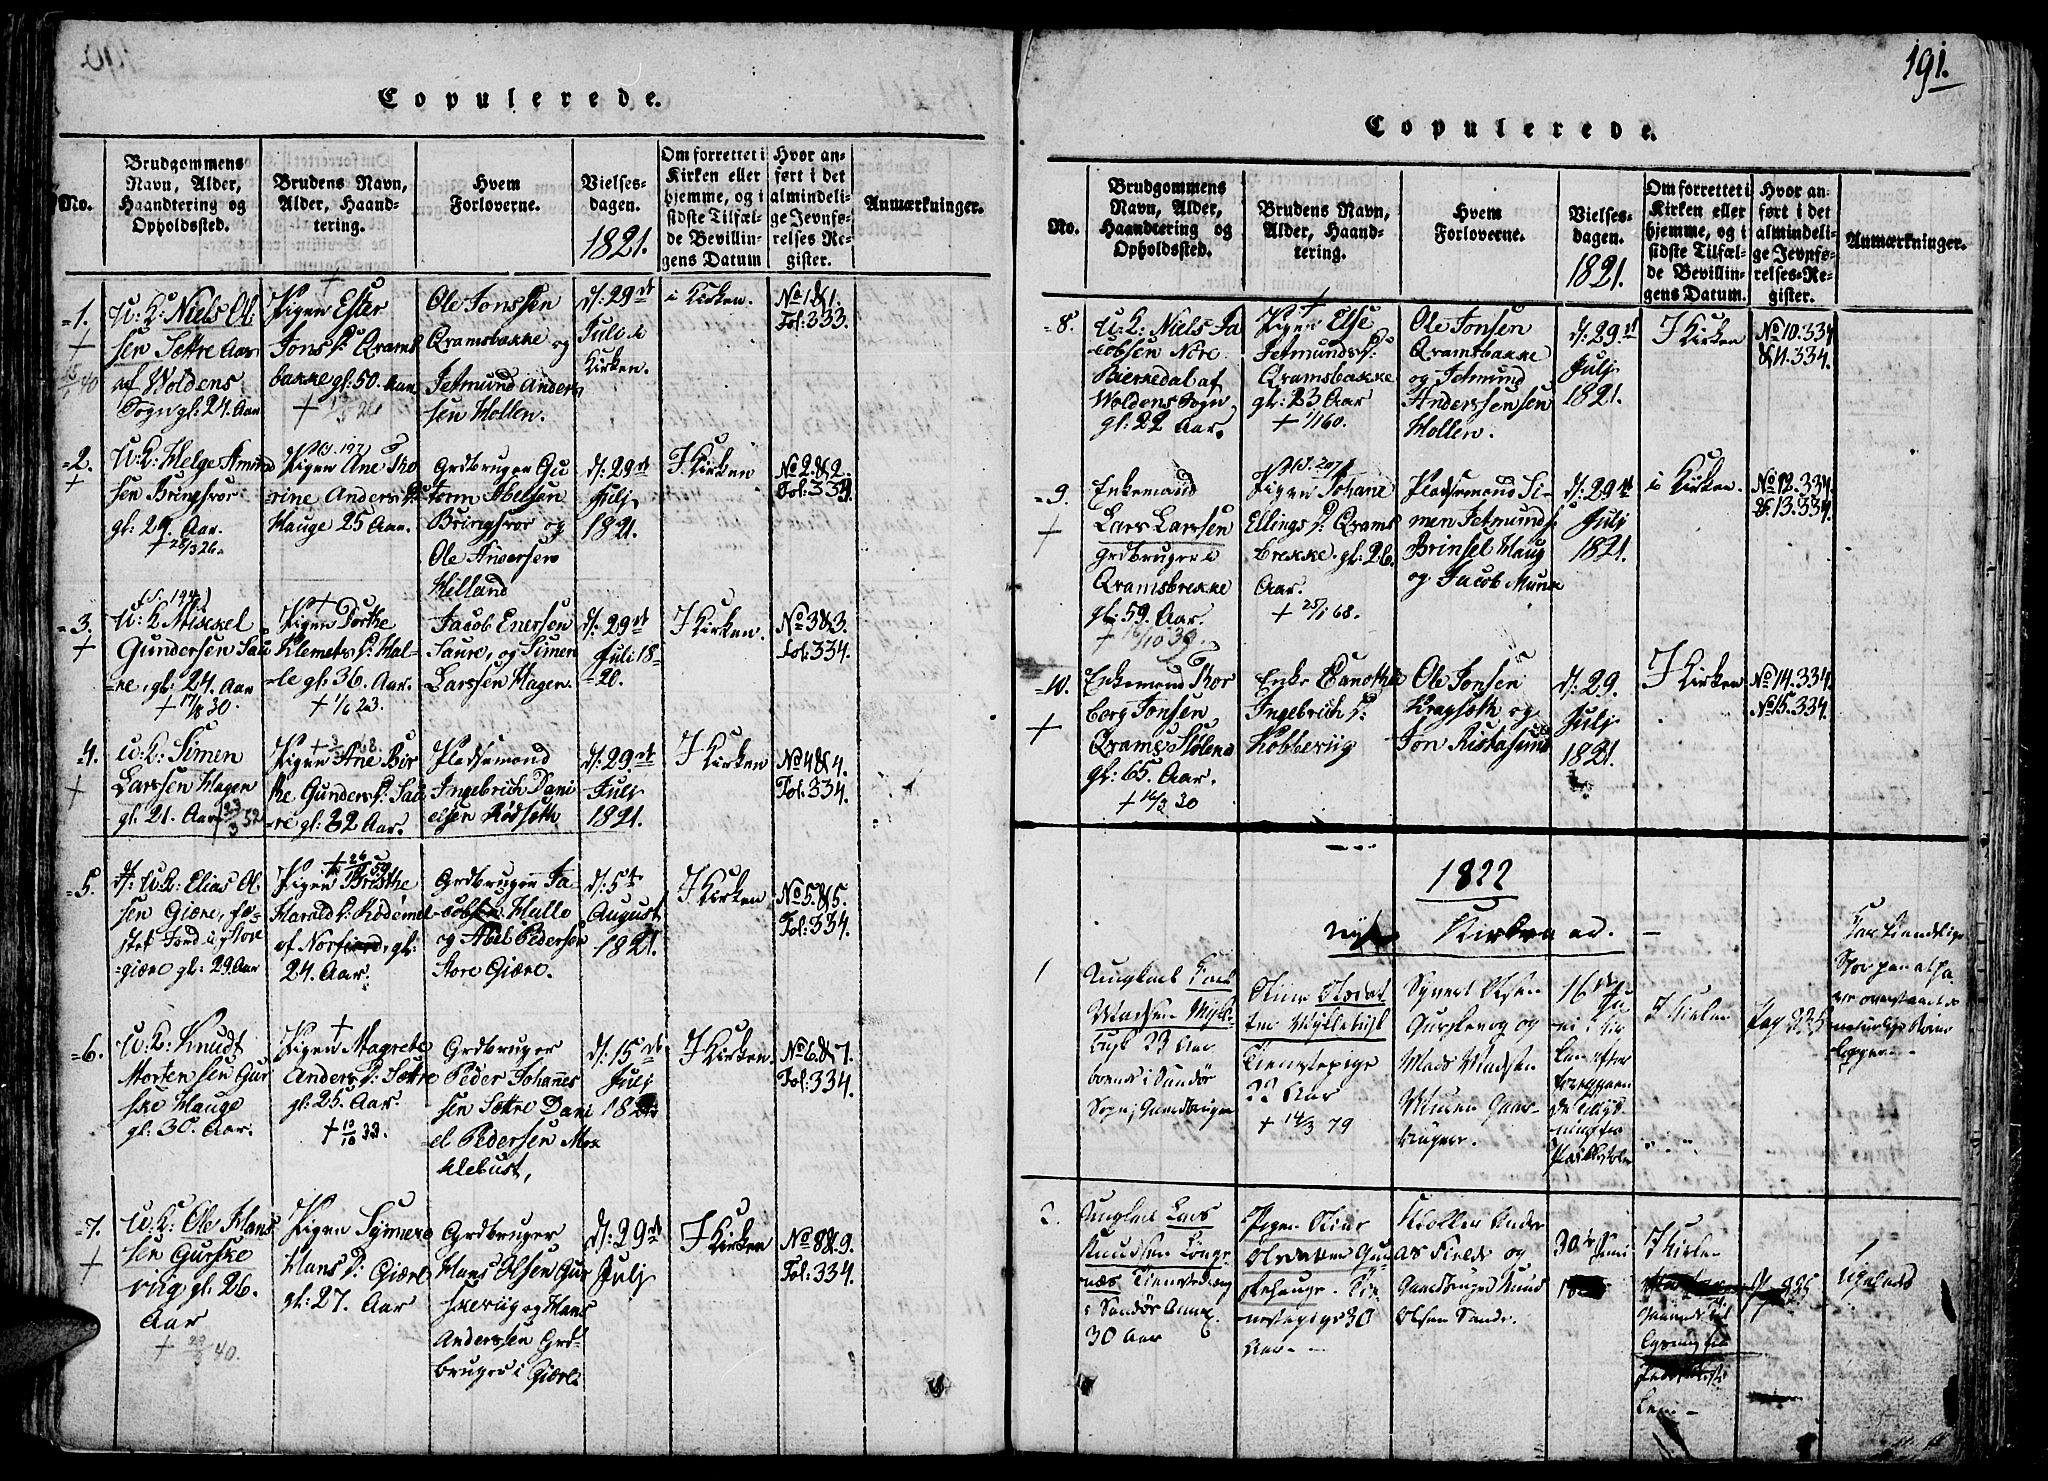 Copulerede.
No.
Brudgommens Navn, Alder, Haandtering og Opholdssted.
Brudens Navn, Alder, Haandtering.
Hvem Forloverne.
Vielsesdagen. 1821.
Om forrettet i Kirken eller hjemme, og i sidste Tilfælde Bevillingens Datum
Hvor anført i det almindelige Jevnførelses-Register.
Anmærkninger.
=1.
U: K: Niels Ol:
sen Sættre Aar
af Woldens
Sogn gl: 24. Aar
Pigen Ester
Jons D: Qrams
bakke gl: 50. Aar
Ole Jonssen
Qramsbakke og
Jetmund Anders
sen Mollen.
d: 29de
Juli i
Kirken.
i Kirken.
No 1 & 1.
Fol: 333.
=2.
U: K: Helge Amund
sen Bringsvor
gl: 29. Aar.
+ 28/3 26.
Pigen Ane Ko
rine Anders D:
Hauge 25 Aar.
Grdbruger Gu
torm Abelsen
Bringsvor og
Ole Andersen
Hilland
d: 29de
Julj
1821.
I Kirken
No 2 & 2.
Fol: 334.
=3.
U: K Misekel
Gundersen Sau
re, gl: 24. Aar
+ 17/8 30.
Pigen Dorthe
Klemets D: Hal
le gl: 36. Aar.
+ 1/6 23.
Jacob Enersen
Saure, og Simen
Larssen Hagen.
d: 29de
Juli 18
20.
I Kirken.
No 3 & 3.
Fol: 334.
4.
U: K: Simen
Larssen Hagen
gl: 21. Aar
Pigen Ane Bir
the Gunders D: Sau
re gl: 32 Aar.
Pladsemand
Ingebrich Dani
elsen Rødseth
d: 29de
Julj
1821.
I Kirken
No 4 & 4.
Fol: 334.
=5.
d: U: K: Elias Ol
sen Giære, fo
giære gl: 29. Aar
Pigen Birthe
Harald D: Rødemel
af Norfiord, gl:
24. Aar.
Grdbruger Ja
cobsen Halle
og Abel Pedersen
Store Giære.
d: 5te
August
1821.
I Kirken
No 5 & 5.
Fol: 334.
=6.
U: K: Knudt
Morten sen Gur
ske Hauge
gl: 30. Aar.
Pigen Magrete
Anders D: Sættre
gl: 25. Aar.
+ 10/10 33.
Grdbruger
Peder Johannes
sen Sættre Dani
el Pedersen Mox
klebust,
d: 15de
Julj
1821
I Kirken.
No 6 & 7.
Fol: 334.
=7.
U: K: Ole Hans
sen Gurske
viig gl: 26.
Aar
Pigen Symere
Hans D: Giære
gl: 27. Aar
Grdbruger
Hans Olsen Gur
skeviig og Hans
Anderssen Grd
bruger i Giære
d: 29de
Julj
I Kirken
No 8 & 9.
Fol: 334.
191.
Copulerede.
No.
Brudgommens Navn, Alder, Haandtering og Opholdssted.
Brudens Navn, Alder, Haandtering.
Hvem Forloverne.
Vielsesdagen. 1821.
Om forrettet i Kirken eller hjemme, og i sidste Tilfælde Bevillingens Datum.
Hvor anført i det almindelige Jevnførelses-Register.
Anmærkninger.
=8.
U: K: Niels Ja
cobsen Nore
Bierkedal af
Woldens Sogn
gl: 22 Aar.
Pigen Else
Jetmunds D:
Qramsbakke
gl: 23 Aar
+ 1/1 60.
Ole Jonsen
Qramsbakke
og Jetmund
Anderssensen
Mollen.
d: 29de
Julj
1821.
I Kirken
No 10. 334
& 11. 334.
=9.
Enkemand
Lars Larssen
grdbruger i
Qramsbrekke
gl: 59. Aar.
Pigen Johane
Ellings D: Qrams
brekke. gl: 26.
Aar.
+ 25/1 68.
Pladsemand Si
men Jetmunds
Brinsel Haug
og Jacob Mun
d: 29de
Julj
1821.
i Kirken.
No 12. 334.
& 13. 334.
=10.
Enkemand Kor
borg Jonsen
Qrams Stølend
gl: 65. Aar.
+ 16/3 30
Enke
Ingebrich D:
Kobberviig
Ole Jonsen
Kragseth og
Jon Ristesund
d: 29.
Julj
1821.
I Kirken
No 14. 334.
No 15. 334.
1822
nye Kirkeaar.
1
Ungkarl
Madsen Mykle
bust 23 Aar
boende i Sandør
Sogn, Gaardbruger
Stine
Myklebust
Tienestepige
22 Aar
+ 14/3 79
Syvert Olsen
Gurskevog og
Mads Madsen
I Kirken
Pag 335
2.
Ungkarl Lars
Knudsen
næs Tienestedreng
i Sandør Annex
30 Aar
Pigen Stine
skehauge. Tie
nestepige 30
Aar
og
Gaardbruger Knud
Olsen Sande.
30te Juni
I Kirken
P 335